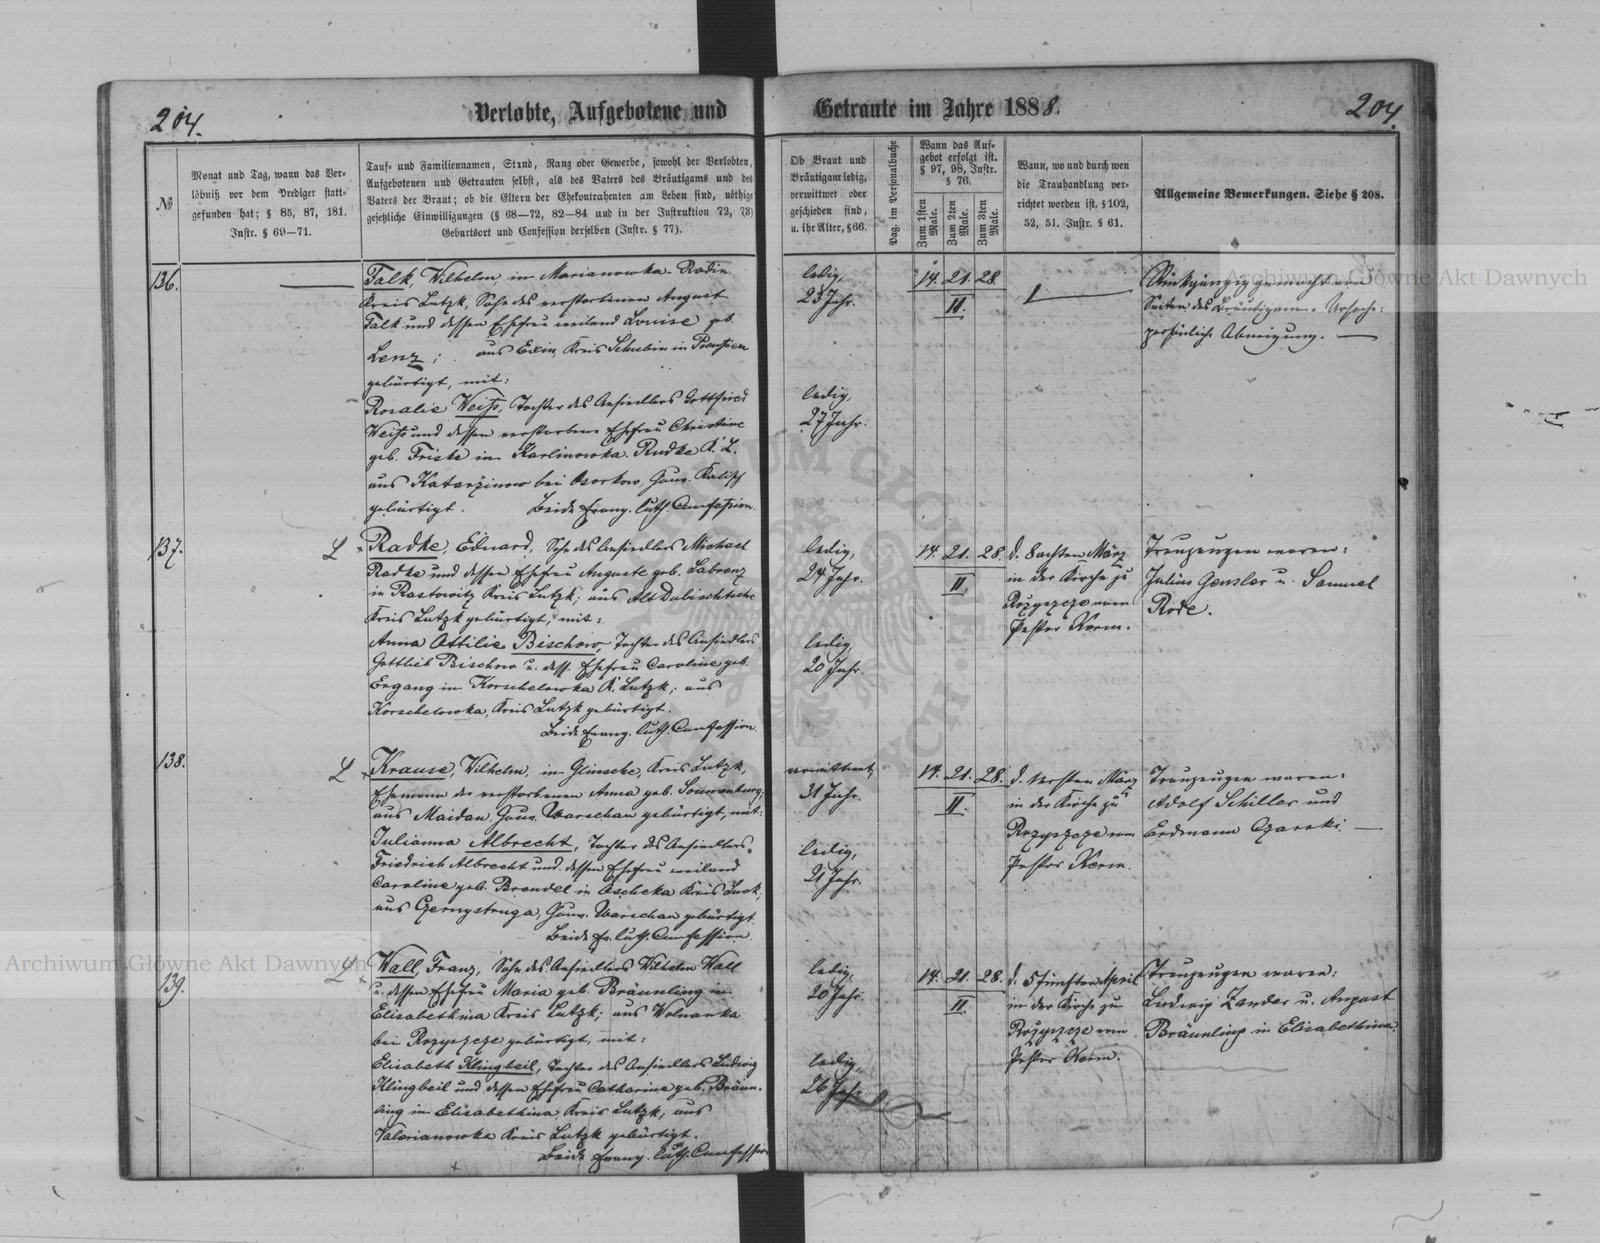 204.
Verlobte, Aufgebotene und
Getraute im Jahre 1888.
204.
№
Monat und Tag, wann das Ver-
löbniß vor dem Prediger statt-
gefunden hat; § 85, 87, 181.
Instr. § 69—71.
Tauf- und Familiennamen, Stand, Rang oder Gewerbe, sowohl der Verlobten,
Aufgebotenen und Getrauten selbst, als des Vaters des Bräutigams und des
Vaters der Braut; ob die Eltern der Ehekontrahenten am Leben sind, nöthige
gesetzliche Einwilligungen (§ 68—72, 82—84 und in der Instruktion 72, 73)
Geburtsort und Confession derselben (Instr. § 77).
Ob Braut und
Bräutigam ledig,
verwittwet oder
geschieden sind,
u. ihr Alter, § 66.
Pag. im Personalbuche
Wann das Auf-
gebot erfolgt ist.
§ 97, 98, Instr.
§ 76.
Zum 1sten Male.
Zum 2ten Male.
Zum 3ten Male.
Wann, wo und durch wen
die Trauhandlung ver-
richtet worden ist. § 102,
52, 51. Instr. § 61.
Allgemeine Bemerkungen. Siehe § 208.
136.
Falk, Wilhelm, in Marianowka-Radin
Kreis Lutzk, Sohn des verstorbenen August
Falk und dessen Ehefrau weiland Louise geb.
Lenz; aus Exin, Kreis Schubin in Preussen
gebürtigt, mit:
Rosalie Weiß, Tochter des Ansiedlers Gottfried
Weiß und dessen verstorbene Ehefrau Christine
geb. Friske in Karlinowka-Rudke K. L.
aus Katarzinow bei Osorkow, Gouv. Kalisch
gebürtigt. Beide Evang. luth. Confession.
ledig,
25 Jahr.
ledig,
27 Jahr.
14. 21. 28.
II.
Rückgängig gemacht von
Seiten des Bräutigams. Ursache:
persönliche Abneigung.
137.
L
Radke, Eduard, Sohn des Ansiedlers Michael
Radke und dessen Ehefrau Auguste geb. Labrenz
in Rastowitz Kreis Lutzk; aus Alt Dubischtsche
Kreis Lutzk gebürtigt, mit:
Anna Ottilie Bischow, Tochter des Ansiedlers
Gottlieb Bischow u. dess. Ehefrau Caroline geb.
Ergang in Korschelowka K. Lutzk; aus
Korschelowka, Kreis Lutzk gebürtigt.
Beide Evang. luth. Confession
ledig,
24 Jahr.
ledig,
20 Jahr.
14. 21. 28.
II.
d. 8 achten März
in der Kirche zu
Rozyszcze vom
Pastor Kerm.
Trauzeugen waren:
Julius Gensler u. Samuel
Rode.
138.
L
Krause, Wilhelm, in Glinsche, Kreis Lutzk,
Ehemann der verstorbenen Anna geb. Sonnenburg;
aus Maidan, Gouv. Warschau gebürtigt, mit:
Julianna Albrecht, Tochter des Ansiedlers
Friedrich Albrecht und dessen Ehefrau weiland
Caroline geb. Brendel in Oscheka Kreis Luck,
aus Czernystruga, Gouv. Warschau gebürtigt
Beide Ev. luth. Confession
verwittwet,
31 Jahr.
ledig,
21 Jahr.
14. 21. 28.
II.
d. ersten März
in der Kirche zu
Rozyszcze vom
Pastor Kerm.
Trauzeugen waren:
Adolf Schiller und
Erdmann Czarski.
139.
L
Wall, Franz, Sohn des Ansiedlers Wilhelm Wall
u. dessen Ehefrau Maria geb. Bräunling in
Elisabethina Kreis Lutzk; aus Wolnanka
bei Rozyszcze gebürtigt, mit:
Elisabeth Klingbeil, Tochter des Ansiedlers Ludwig
Klingbeil und dessen Ehefrau Catharine geb. Bräun-
ling in Elisabethina, Kreis Lutzk, aus
Valerianowka Kreis Lutzk gebürtigt.
Beide Evang. luth. Confession
ledig,
20 Jahr.
ledig,
26 Jahr.
14. 21. 28.
II.
d. 5 fünften April
in der Kirche zu
Rozyszcze vom
Pastor Kerm.
Trauzeugen waren:
Ludwig Zander u. August
Bräunling in Elisabethina.
Archiwum Główne Akt Dawnych
Archiwum Główne Akt Dawnych